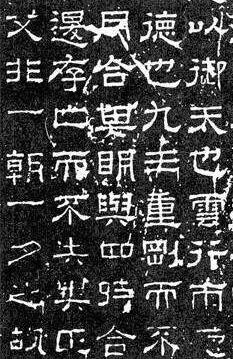 以御天也雲行雨
德也九三重剛而不
月合其明與四時合
退存亡而不失其
父非一朝一夕之故